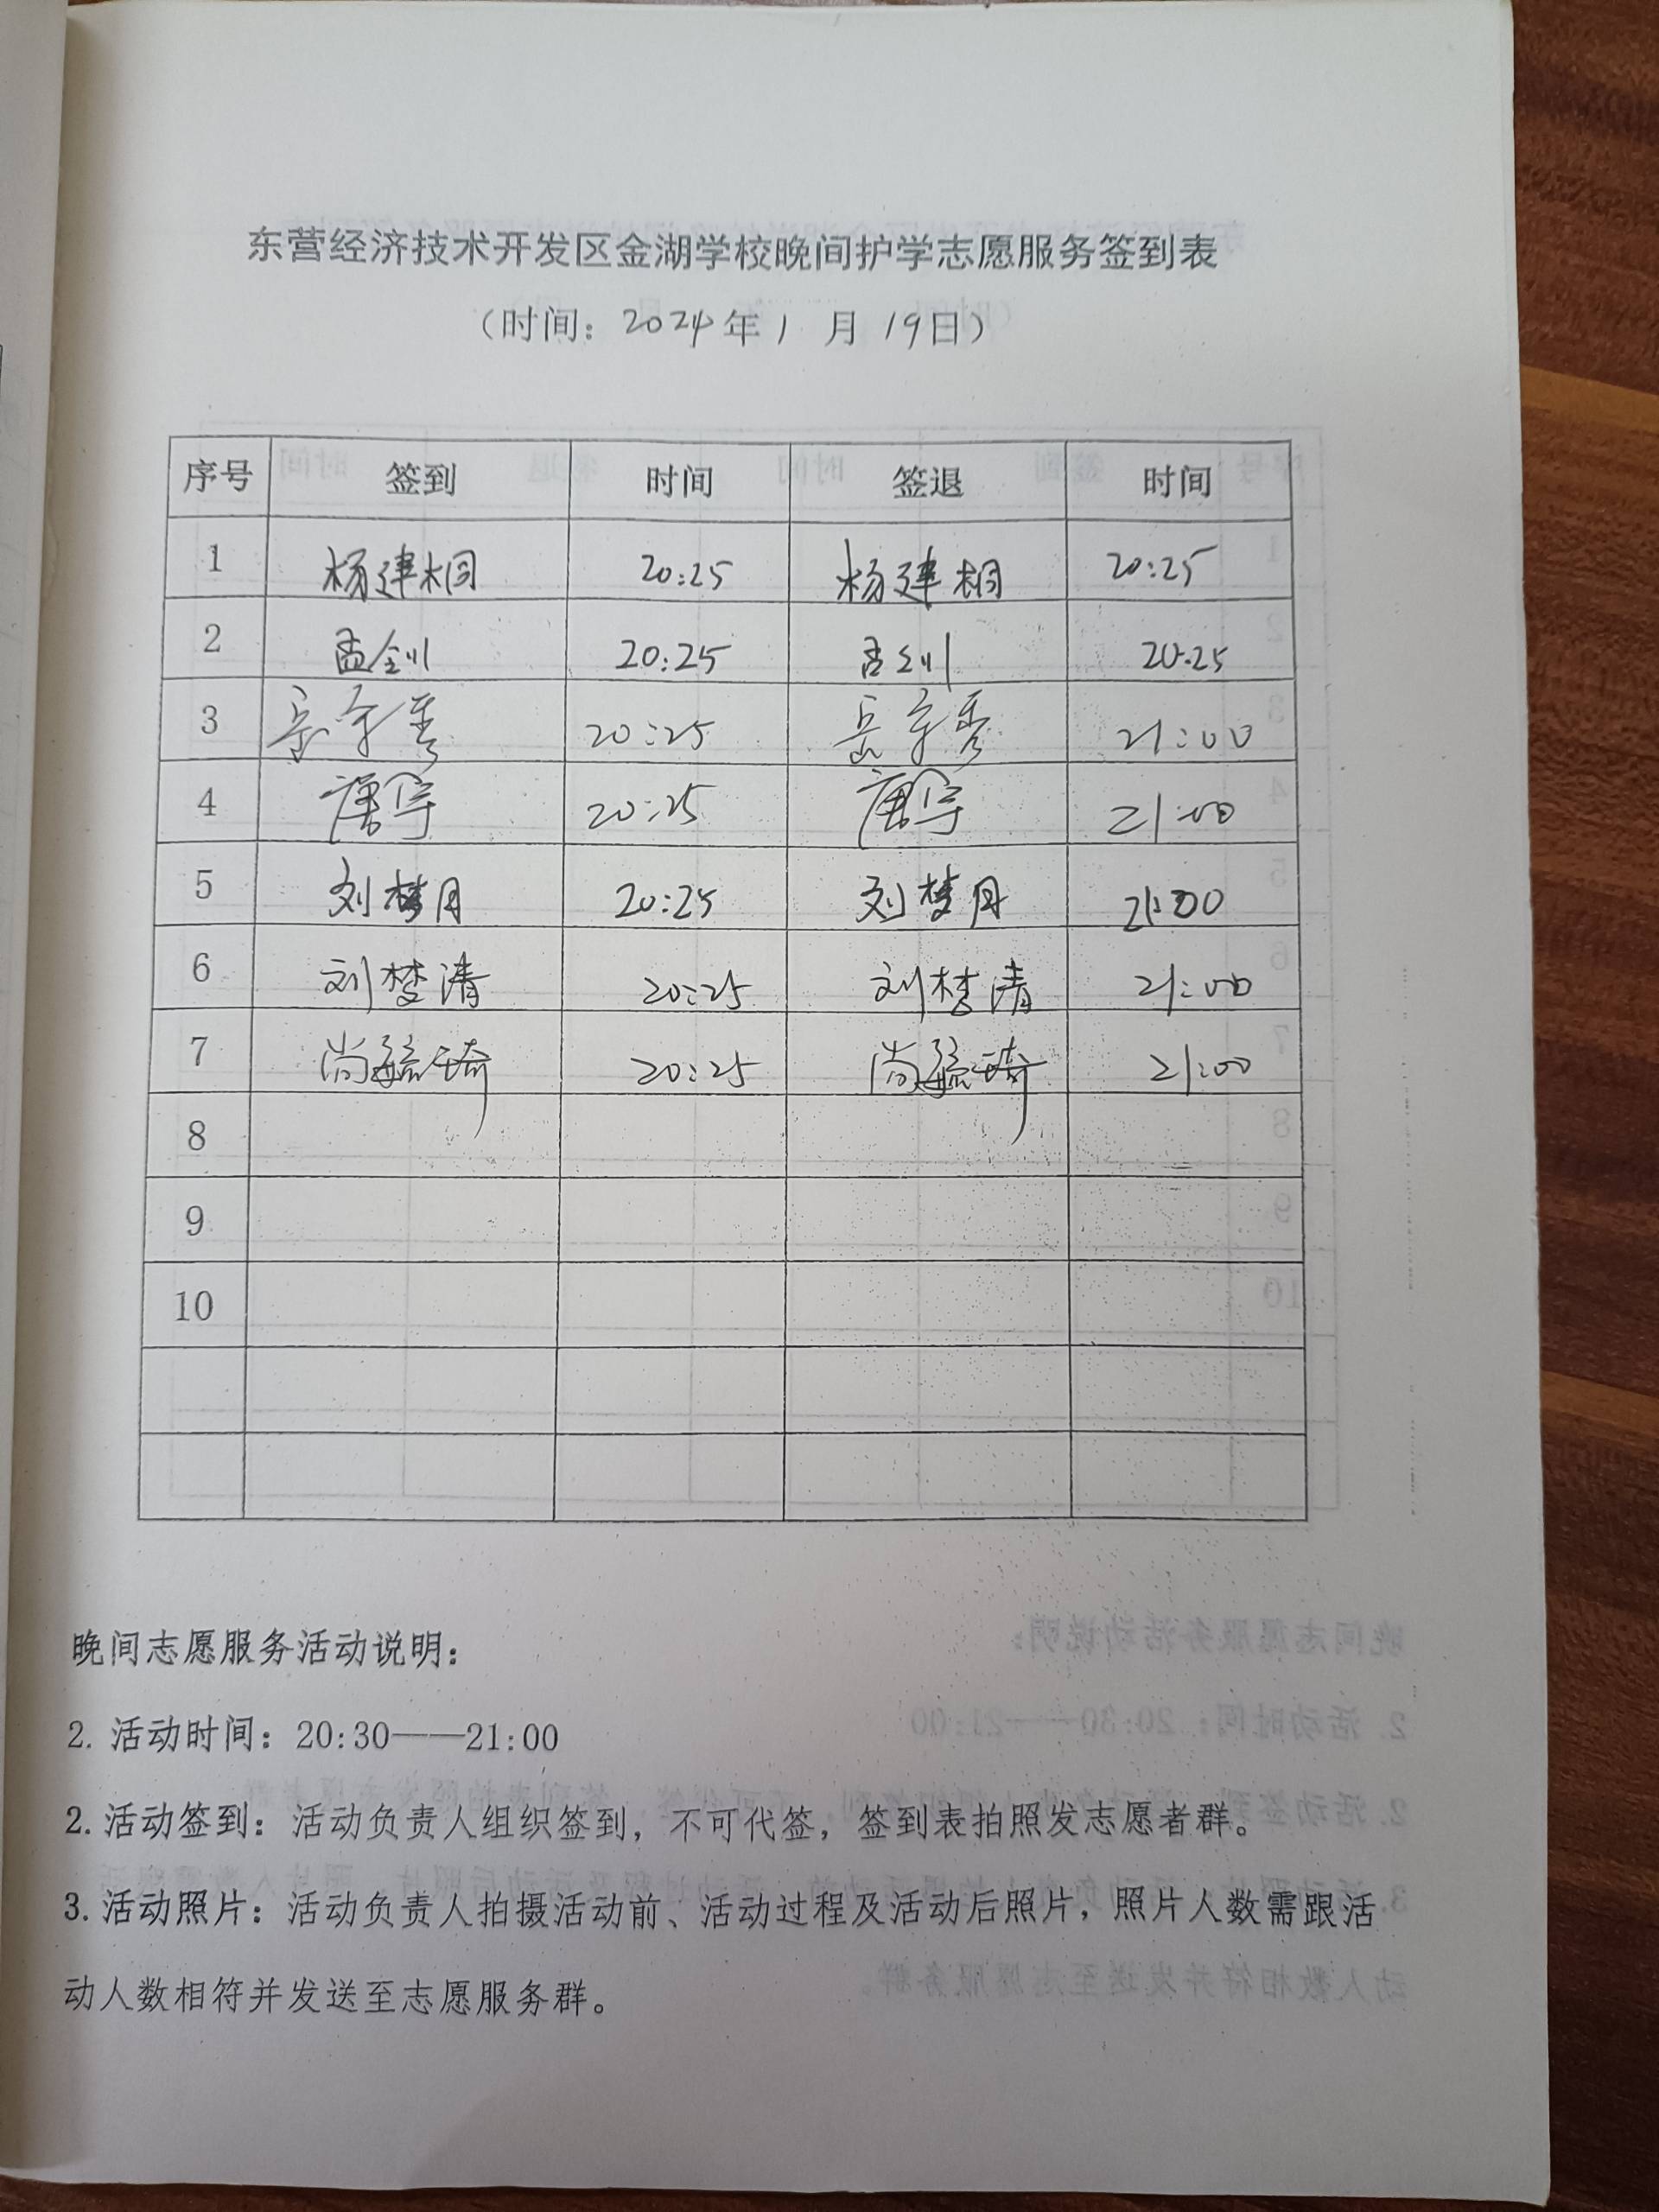 东营经济技术开发区金湖学校晚间护学志愿服务签到表
（时间：2024年1月19日）
序号 签到 时间 签退 时间
1 杨建桐 20:25 杨建桐 20:25
2 孟钊 20:25 孟钊 20:25
3 岳 秀 20:25 岳 秀 21:00
4 唐宇 20:25 唐宇 21:00
5 刘梦月 20:25 刘梦月 21:00
6 刘梦清 20:25 刘梦清 21:00
7 尚毓琦 20:25 尚毓琦 21:00
8
9
10
晚间志愿服务活动说明：
2. 活动时间：20:30——21:00
2. 活动签到：活动负责人组织签到，不可代签，签到表拍照发志愿者群。
3. 活动照片：活动负责人拍摄活动前、活动过程及活动后照片，照片人数需跟活
动人数相符并发送至志愿服务群。